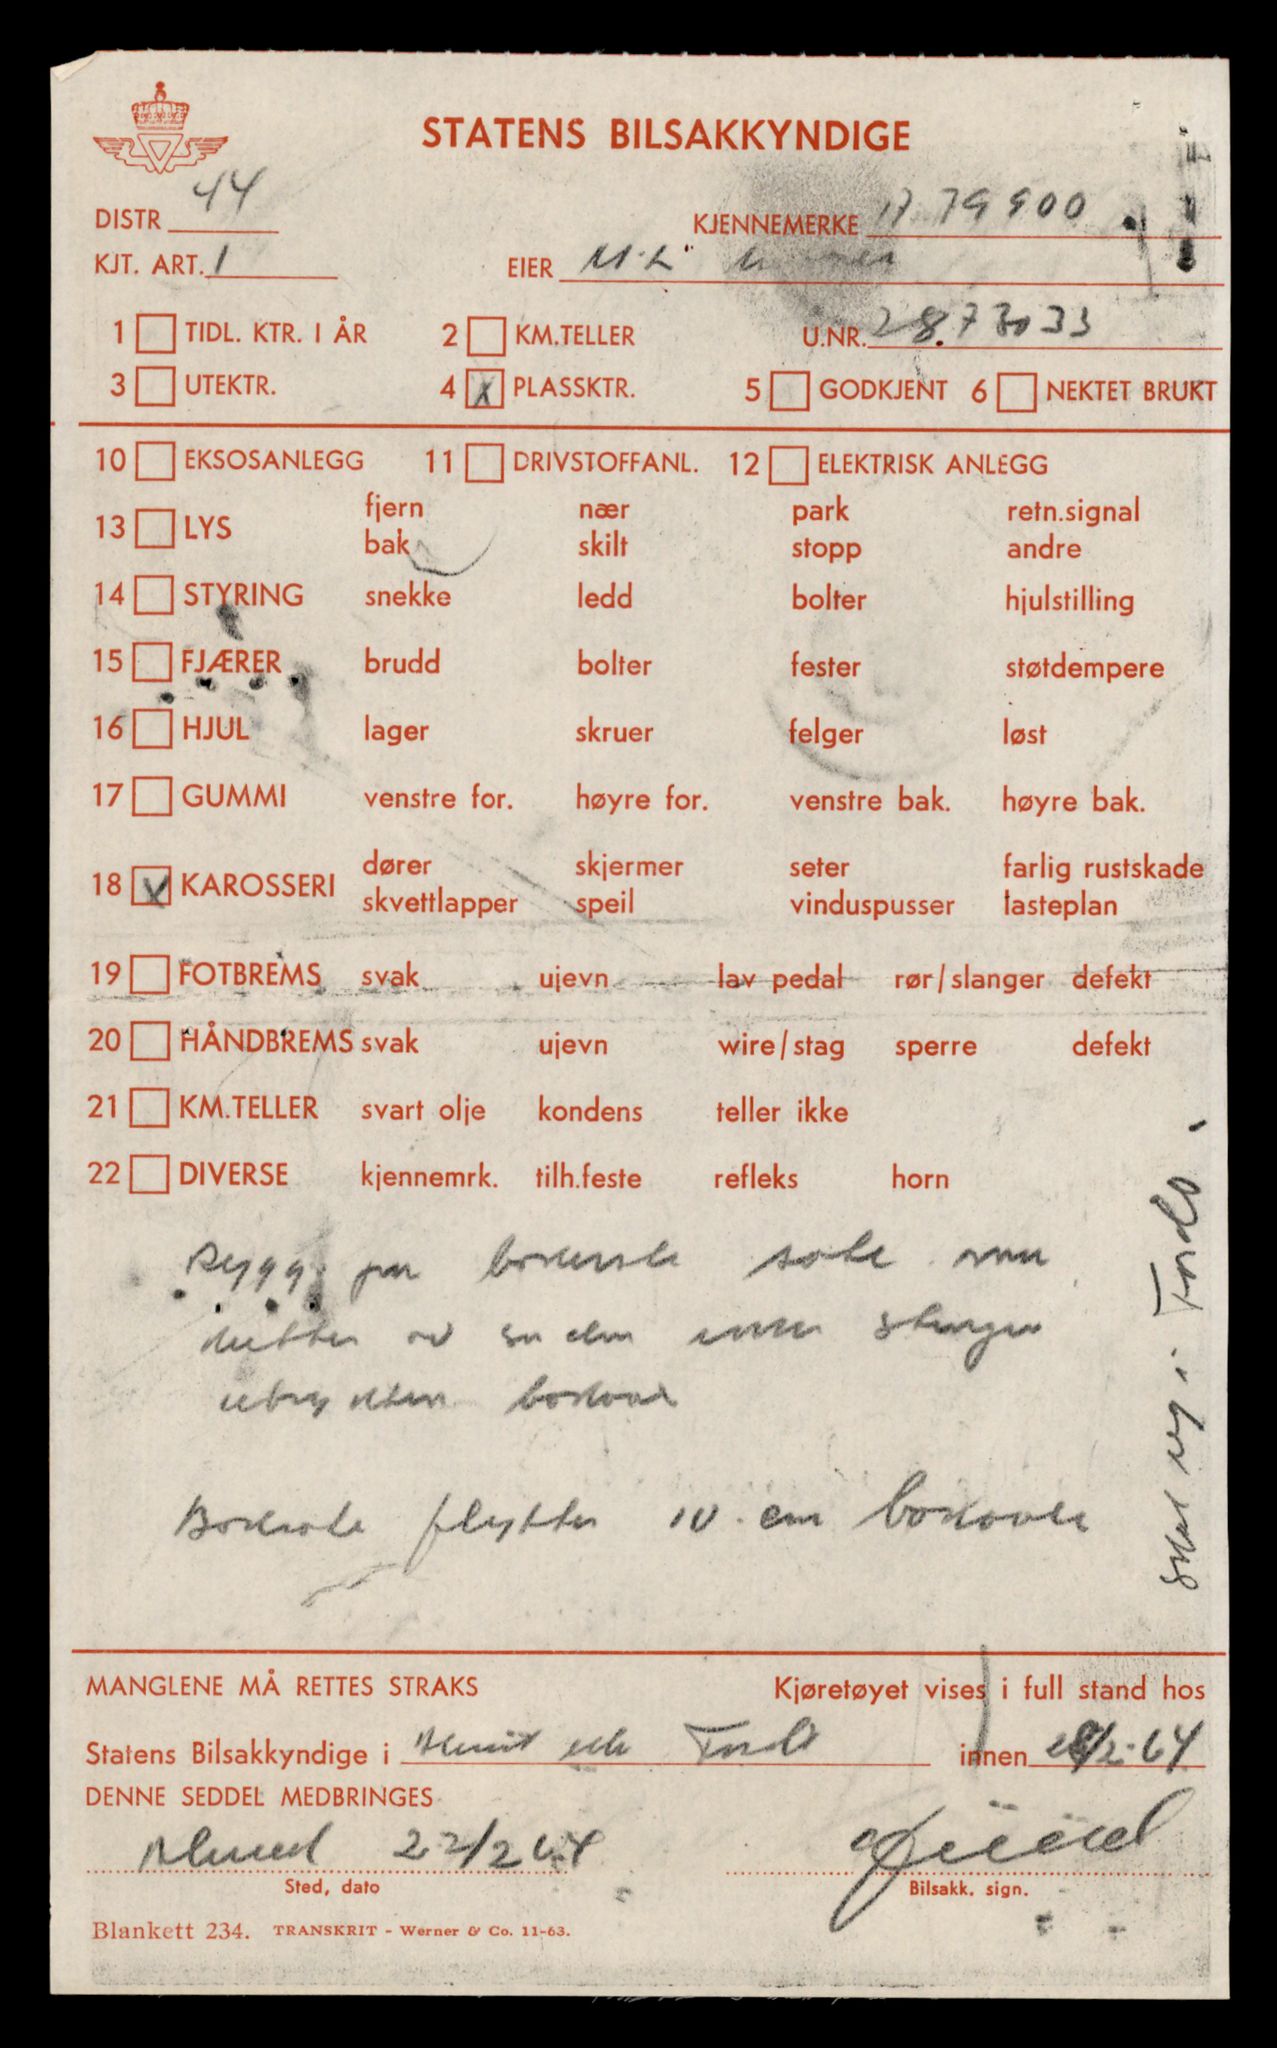 STATENS BILSAKKYNDIGE
DISTR 44
KJENNEMERKE 79900
KJT. ART. 1
EIER
1 TIDL. KTR. I ÅR 2 KM.TELLER U.NR. 28.73033
3 UTEKTR. 4 X PLASSKTR. 5 GODKJENT 6 NEKTET BRUKT
10 EKSOSANLEGG 11 DRIVSTOFFANL. 12 ELEKTRISK ANLEGG
fjern nær park retn.signal
13 LYS
bak skilt stopp andre
14 STYRING snekke ledd bolter hjulstilling
15 FJÆRER brudd bolter fester støtdempere
16 HJUL lager skruer felger løst
17 GUMMI venstre for. høyre for. venstre bak. høyre bak.
dører skjermer seter farlig rustskade
18 X KAROSSERI
skvettlapper speil vinduspusser lasteplan
19 FOTBREMS svak ujevn lav pedal rør/slanger defekt
20 HÅNDBREMS svak ujevn wire/stag sperre defekt
21 KM.TELLER svart olje kondens teller ikke
22 DIVERSE kjennemrk. tilh.feste refleks horn
Rygg på bakerste sete
bakover
flyttes 10 cm bakover
Skal reg i
MANGLENE MÅ RETTES STRAKS Kjøretøyet vises i full stand hos
Statens Bilsakkyndige i innen /2-64
DENNE SEDDEL MEDBRINGES
22/2 64
Sted, dato Bilsakk. sign.
Blankett 234. TRANSKRIT - Werner & Co. 11-63.